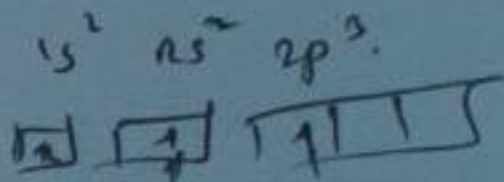 1s² 2s² 2p³.